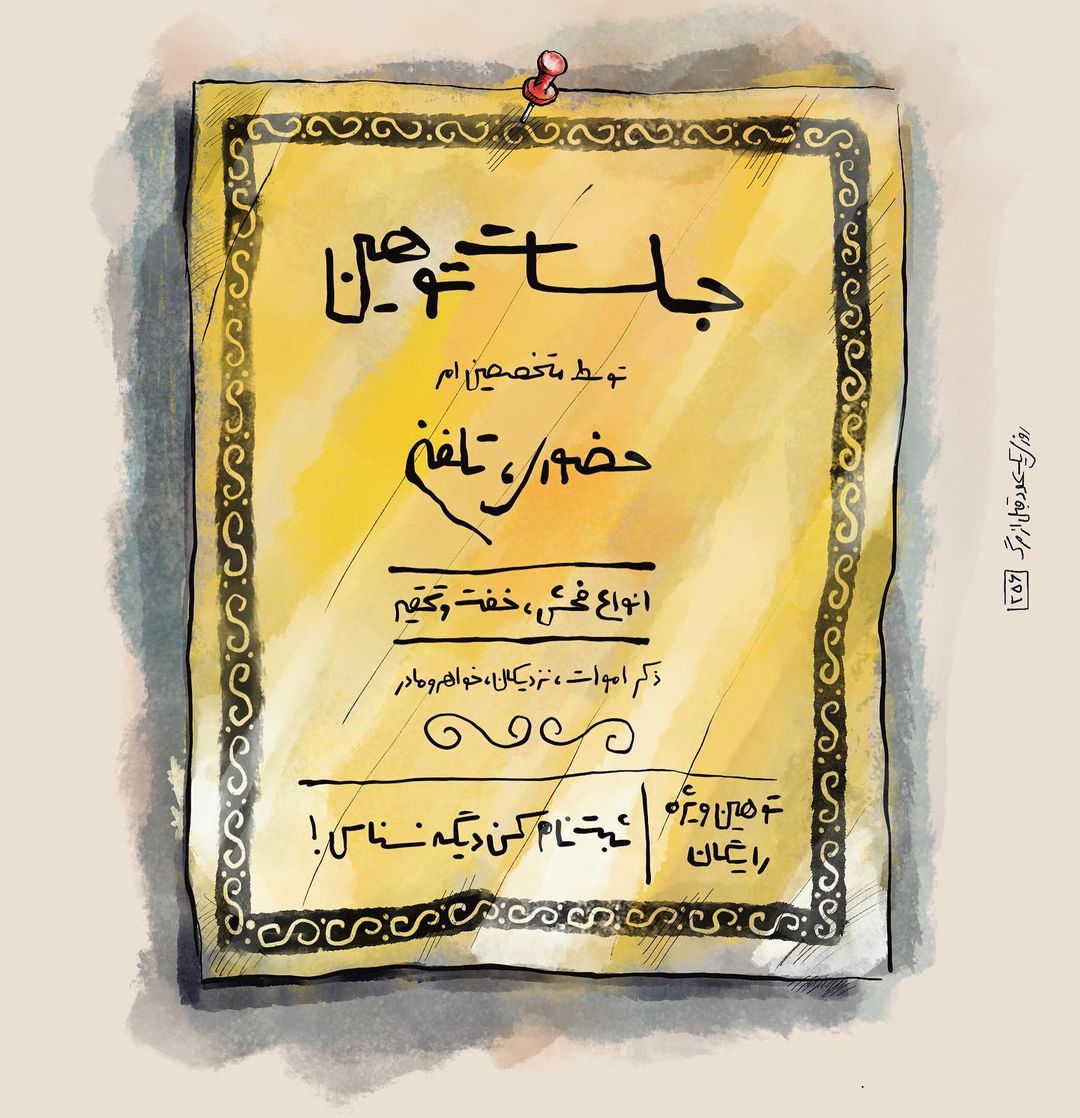 جلسات توهین
توسط متخصصین امر
حضوری، تلفنی
انواع فحش، خفت و تحقیر
ذکر اموات، نزدیکان، خواهر و مادر
توهین ویژه
رایگان
ثبت نام کن دیگه نسناس!
قبل از مرگ
۲۵۶